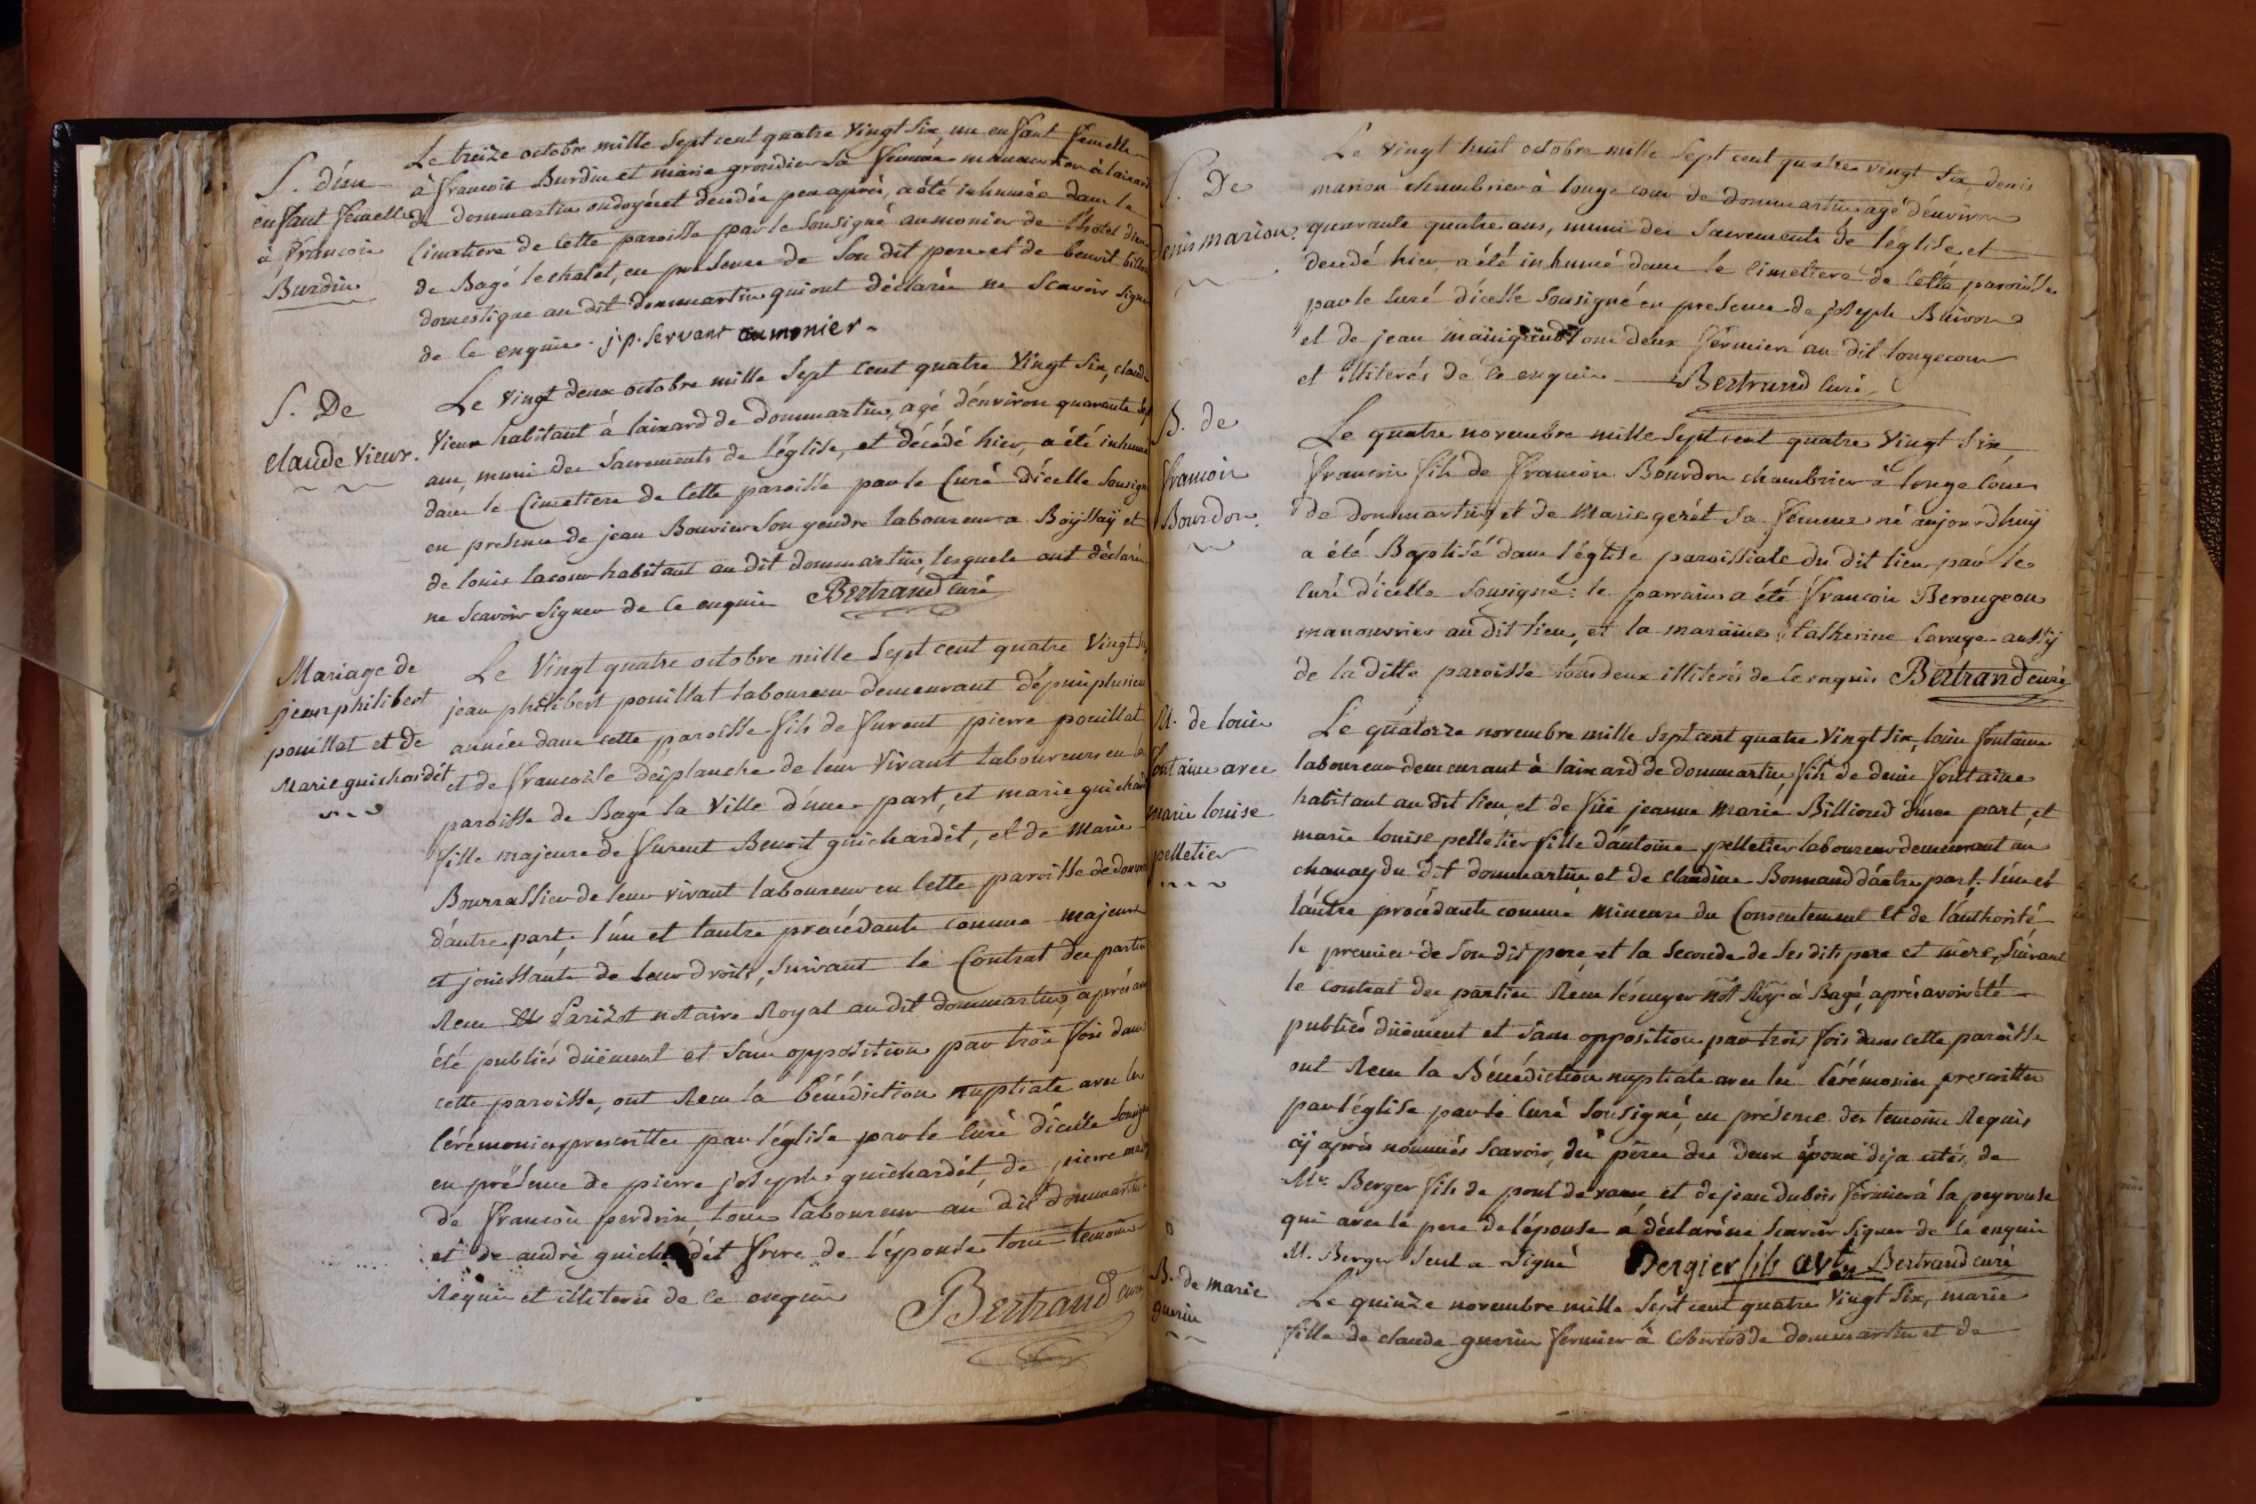 S. d'un
enfant femelle
à francois
Burdin
Le treize octobre mille sept cent quatre vingt six, un enfant femelle
à francois Burdin et marie grondier sa femme manouvrier à laixard
de dommartin ondoyé et decedée peu après, a été inhumée dans le
Cimetiere de cette paroisse par le sousigné aumonier de l'hotel dieu
de Bagé le chatel, en presence de son dit pere et de benoit
domestique au dit dommartin qui ont déclarés ne scavoir signer
de ce enquis. j. p. servant aumonier
S. De
claude vieux.
Le vingt deux octobre mille sept cent quatre vingt six, claude
vieux habitant à laixard de dommartin, agé d'environ quarante sept
ans, muni des sacrements de l'église, et décédé hier, a été inhumé
dans le Cimetiere de cette paroisse par le Curé d'icelle sousigné
en presence de jean Bouvier son gendre laboureur a Boÿssaÿ et
de louis lacour habitant au dit dommartin, lesquels ont déclarés
ne scavoir signer de ce enquis Bertrand curé
Mariage de
jean philibert
pouillat et de
Marie guichardét
Le vingt quatre octobre mille sept cent quatre vingt six
jean philibert pouillat laboureur demeurant dépuis plusieurs
années dans cette paroisse fils de furent pierre pouillat
et de francoise déplanche de leur vivant laboureurs en la
paroisse de Bagé la ville d'une part, et marie guichardét
fille majeure de furent Benoit guichardét, et de Marie
Bourrassier de leur vivant laboureur en cette paroisse de dommartin
d'autre part. l'un et l'autre procédants comme majeurs
et jouissants de leur droits, suivant le Contrat des parties
Recu Parizot notaire Royal au dit dommartin, après avoir
été publiés düement et sans opposition par trois fois dans
cette paroisse, ont Recu la bénédiction nuptiale avec les
cérémonies prescrittes par l'église par le curé d'icelle sousigné
en présence de pierre joseph guichardét, de pierre
de francois perdrix tous laboureurs au dit dommartin
et de andré guichardét frere de l'épouse tous temoins
Requis et illiterés de ce enquis
Bertrand curé
S. De
Denis marion.
Le vingt huit octobre mille sept cent quatre vingt six denis
marion chambrier à longe cour de dommartin agé d'environ
quarante quatre ans, muni des sacrements de l'église, et
decedé hier a été inhumé dans le cimetiere de cette paroisse
par le curé d'icelle sousigné en presence de joseph Buiron
et de jean tous deux fermiers au dit longecour
et illiterés de ce enquis Bertrand curé
B. de
francois
Bourdon.
Le quatre novembre mille sept cent quatre vingt six,
francois fils de francois Bourdon chambrier à longe cour
de dommartin et de Marie gerét sa femme né aujourdhuÿ
a été Baptisé dans l'église paroissiale du dit lieu par le
curé d'icelle sousigné: le parrain a été francois Berougeon
manouvrier au dit lieu, et la maraine Catherine lavage aussÿ
de la ditte paroisse tous deux illiterés de ce enquis Bertrand curé
M. de louis
fontaine avec
marie louise
pelletier
Le quatorze novembre mille sept cent quatre vingt six, louis fontaine
laboureur demeurant à laixard de dommartin, fils de denis fontaine
habitant au dit lieu, et de füe jeanne Marie Billioud d'une part, et
marie louise pelletier fille d'antoine pelletier laboureur demeurant au
chanay du dit dommartin et de claudine Bonnand d'autre part. l'un et
l'autre procédants comme mineurs du Consentement et de l'authorité
le premier de son dit pere, et la seconde de ses dits pere et mère, suivant
le contrat des parties Recu lescuyer not. Roÿ. à Bagé, après avoir été
publiés düement et sans opposition par trois fois dans cette paroisse
ont Recu la Bénédiction nuptiale avec les cérémonies prescrittes
par l'église par le curé sousigné, en présence des temoins Requis
cÿ après nommés scavoir, des pères des deux époux deja cités, de
Mr. Berger fils de pont de vaux, et de jean dubois fermier à la peyrouse
qui avec le pere de l'épouse a déclaré ne scavoir signer de ce enquis
M. Berger seul a signé Bergier fils Bertrand curé
B. de marie
guerin
Le quinze novembre mille sept cent quatre vingt six, marie
fille de claude guerin fermier à de dommartin et de